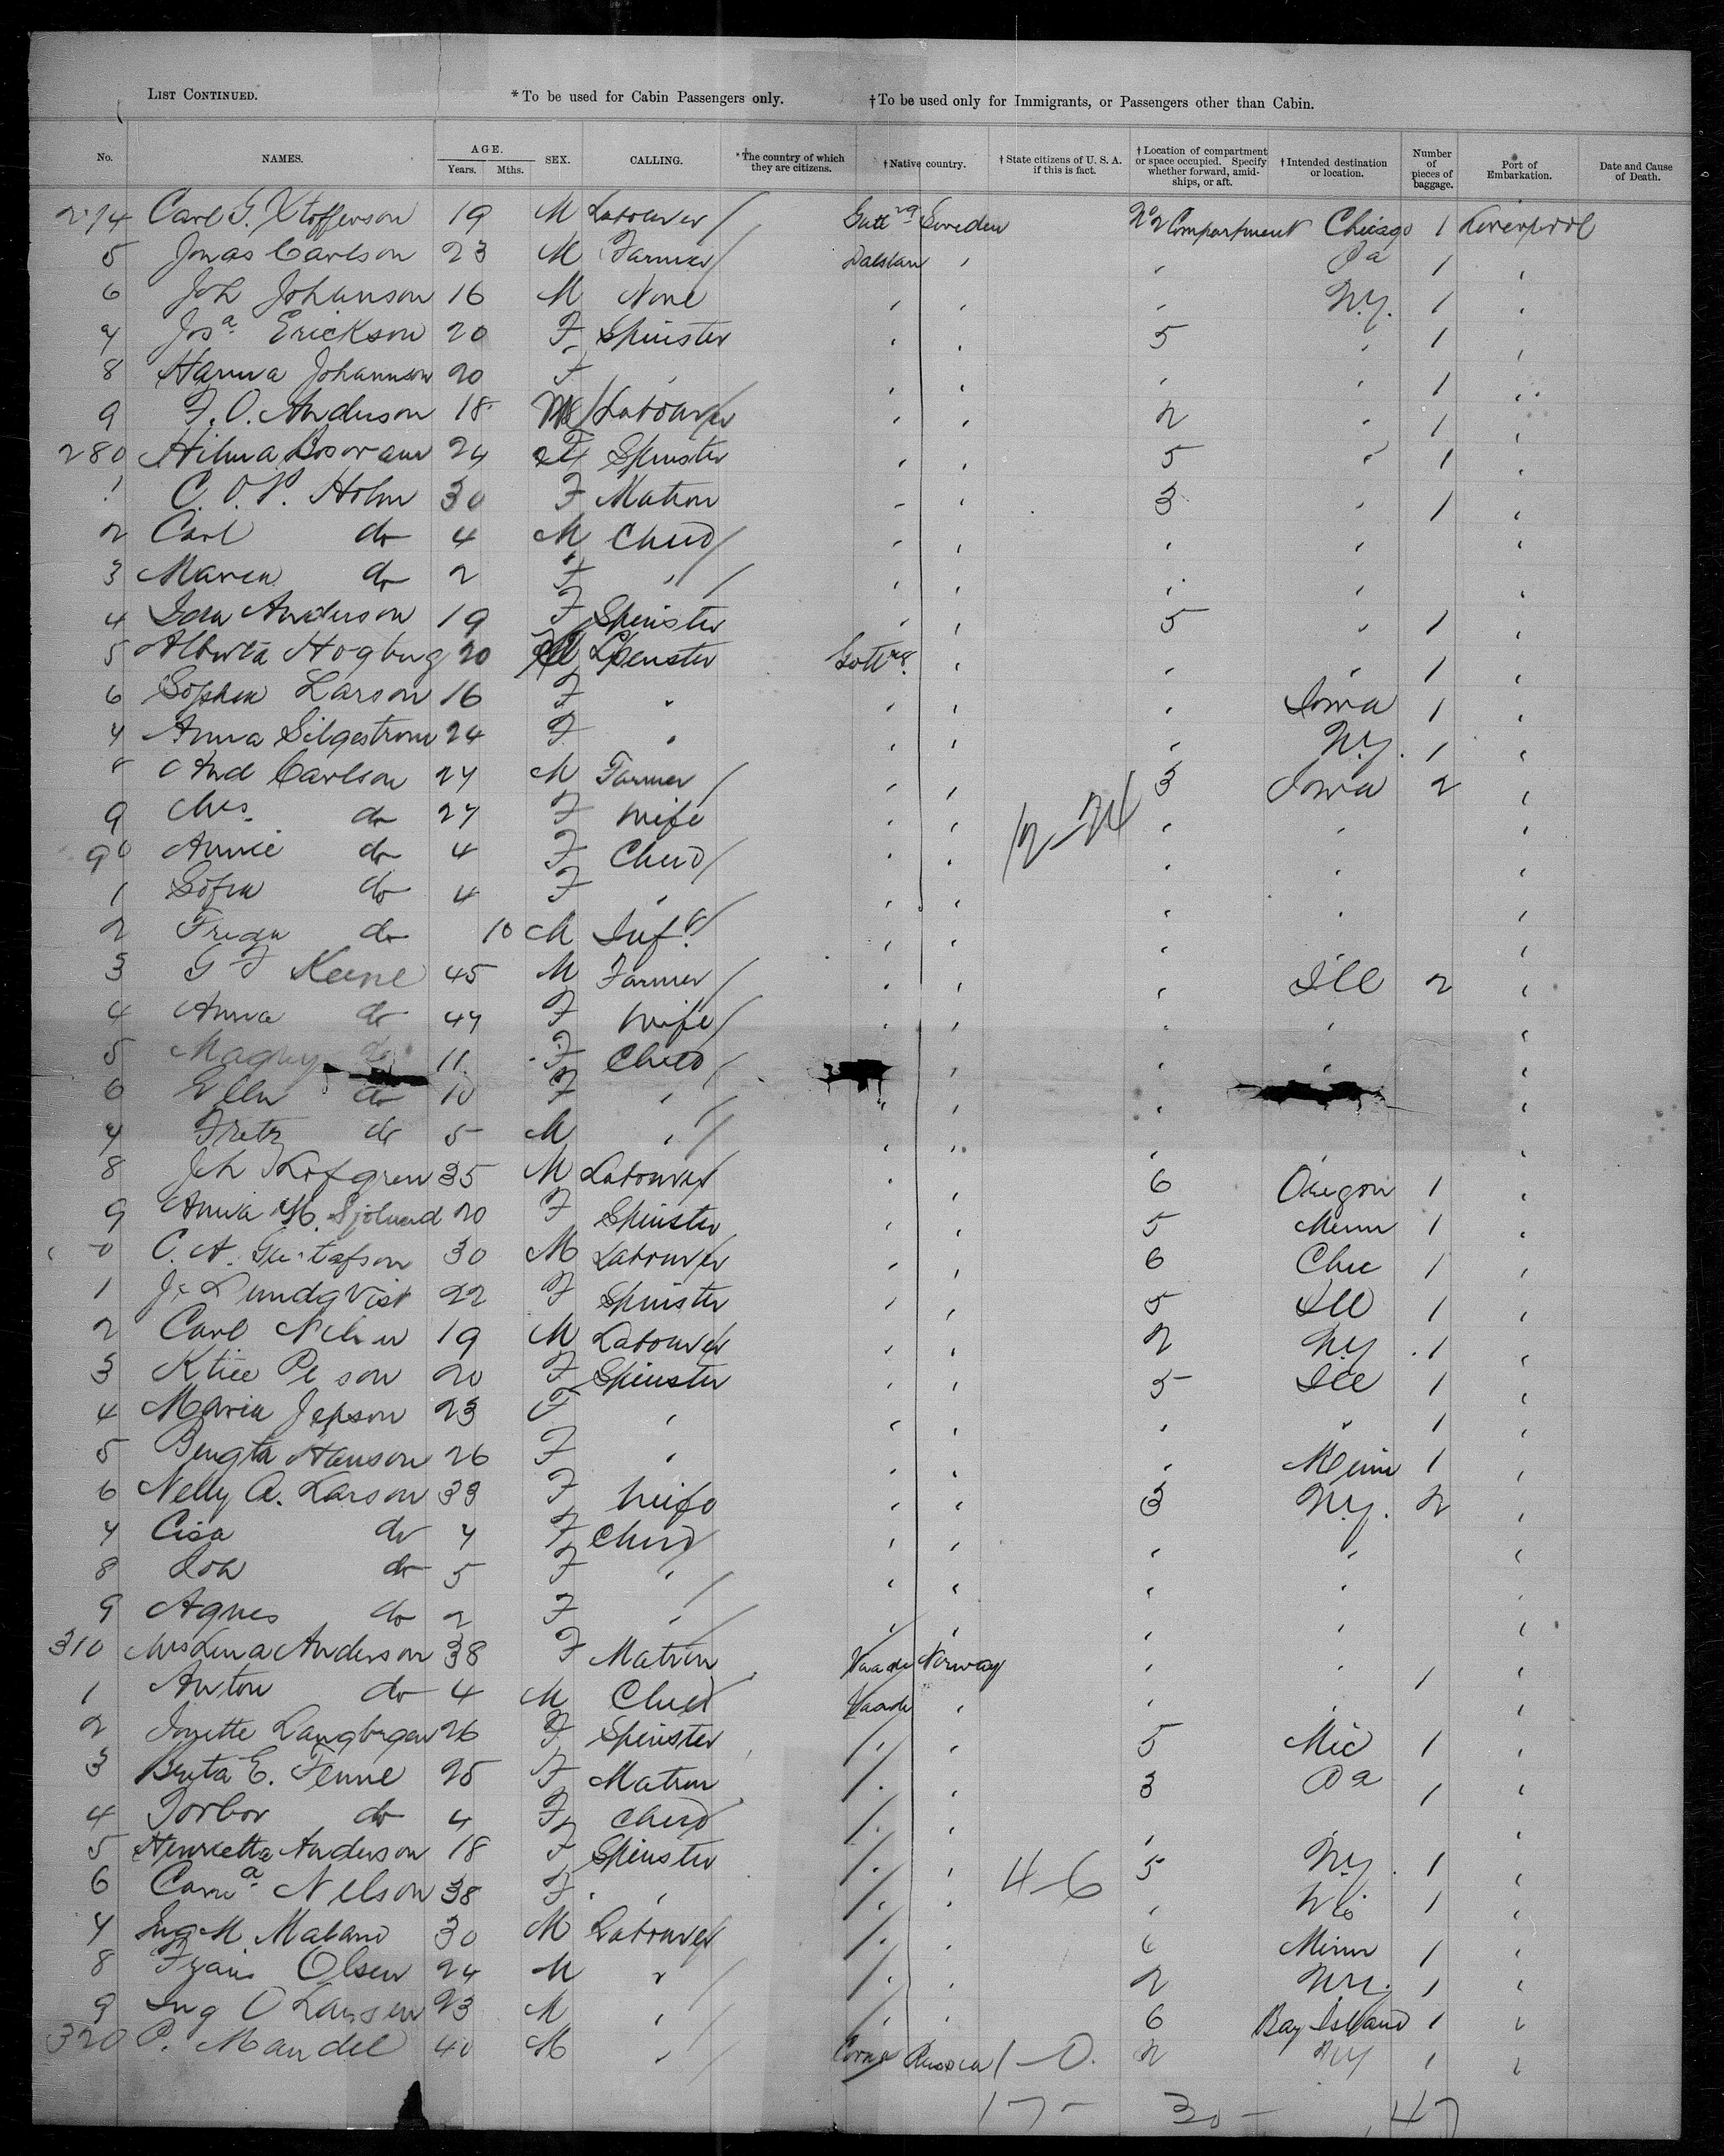 LIST CONTINUED. *To be used for Cabin Passengers only. †To be used only for Immigrants, or Passengers other than Cabin.
No. NAMES. AGE. Years. Mths. SEX. CALLING. *The country of which they are citizens. †Native country. †State citizens of U. S. A. if this is fact. †Location of compartment or space occupied. Specify whether forward, amidships, or aft. †Intended destination or location. Number of pieces of baggage. Port of Embarkation. Date and Cause of Death.
274 Carl G. Xtofferson 19 M Labourer / Sweden No 2 Compartment Chicago 1 Liverpool
5 Jonas Carlson 23 M Farmer / Dalslan " " Pa 1 "
6 Joh Johanson 16 M None " " " N.Y. 1 "
7 Josa Erickson 20 F Spinster " " 5 " 1 "
8 Hanna Johannson 20 F " " " " " 1 "
9 F. O. Anderson 18 M Labourer " " 2 " 1 "
280 Hilma 24 F Spinster " " 5 " 1 "
1 C. O. P. Holm 30 F Matron " " 3 " 1 "
2 Carl do 4 M Child / " " " " "
3 Maren do 2 F " / " " " " "
4 Ida Anderson 19 F Spinster " " 5 " 1 "
5 Alberta Hogburg 20 Spinster " " " 1 "
6 Sophia Larson 16 F " " " " Iowa 1 "
7 Anna Silgestrom 24 F " " " " N.Y. 1 "
8 And Carlson 27 M Farmer / " " 3 Iowa 2 "
9 Mrs. do 27 F Wife " " 12-24 " " "
90 Annie do 4 F Child / " " " " "
1 Sofia do 4 F " " " " " "
2 Freda do 10 M Inft / " " " "
3 G F Keene 45 M Farmer / " " " Ill 2 "
4 Anna do 47 F Wife / " " " " "
5 Magny do 11 F Child / " " " "
6 Ellen do 10 F " " " " "
7 Fretz do 5 M " / " " " " "
8 Joh Kofgren 35 M Labourer " " 6 Oregon 1 "
9 Anna M. Sjolund 20 F Spinster " " 5 Minn 1 "
0 C. A. Gustafson 30 M Labourer " " 6 Chic 1 "
1 Lundqvist 22 F Spinster " " 5 Ill 1 "
2 Carl 19 M Labourer " " 2 NY 1 "
3 20 F Spinster " " 5 Ill 1 "
4 Maria Jepson 23 F " " " " " 1 "
5 Bengta Hanson 26 F " " " " Minn 1 "
6 Nelly A. Larson 33 F Wife " " 3 N.Y. 2 "
7 Cisa do 7 F Child / " " " " "
8 do 5 F " " " " " "
9 Agnes do 2 F " / " " " " "
310 Mrs Lena Anderson 38 F Matron Norway " " 1 "
1 Anton do 4 M Child " " " "
2 26 F Spinster " " 5 Mic 1 "
3 Brita E. Fenne 25 F Matron " " 3 Pa 1 "
4 Torbor do 4 F Child " " " "
5 Henrietta Anderson 18 F Spinster " " 5 N.Y. 1 "
6 Nelson 38 F " " " 4-6 " Wis 1 "
7 Ing M 30 M Labourer " " 6 Minn 1 "
8 Olsen 24 M " / " " 2 N.Y. 1 "
9 Ing O Larsen 23 M " / " " 6 Bay Island 1 "
320 P. Mandel 40 M " / Russia 1-0. 2 NY 1 "
17- 30- 47